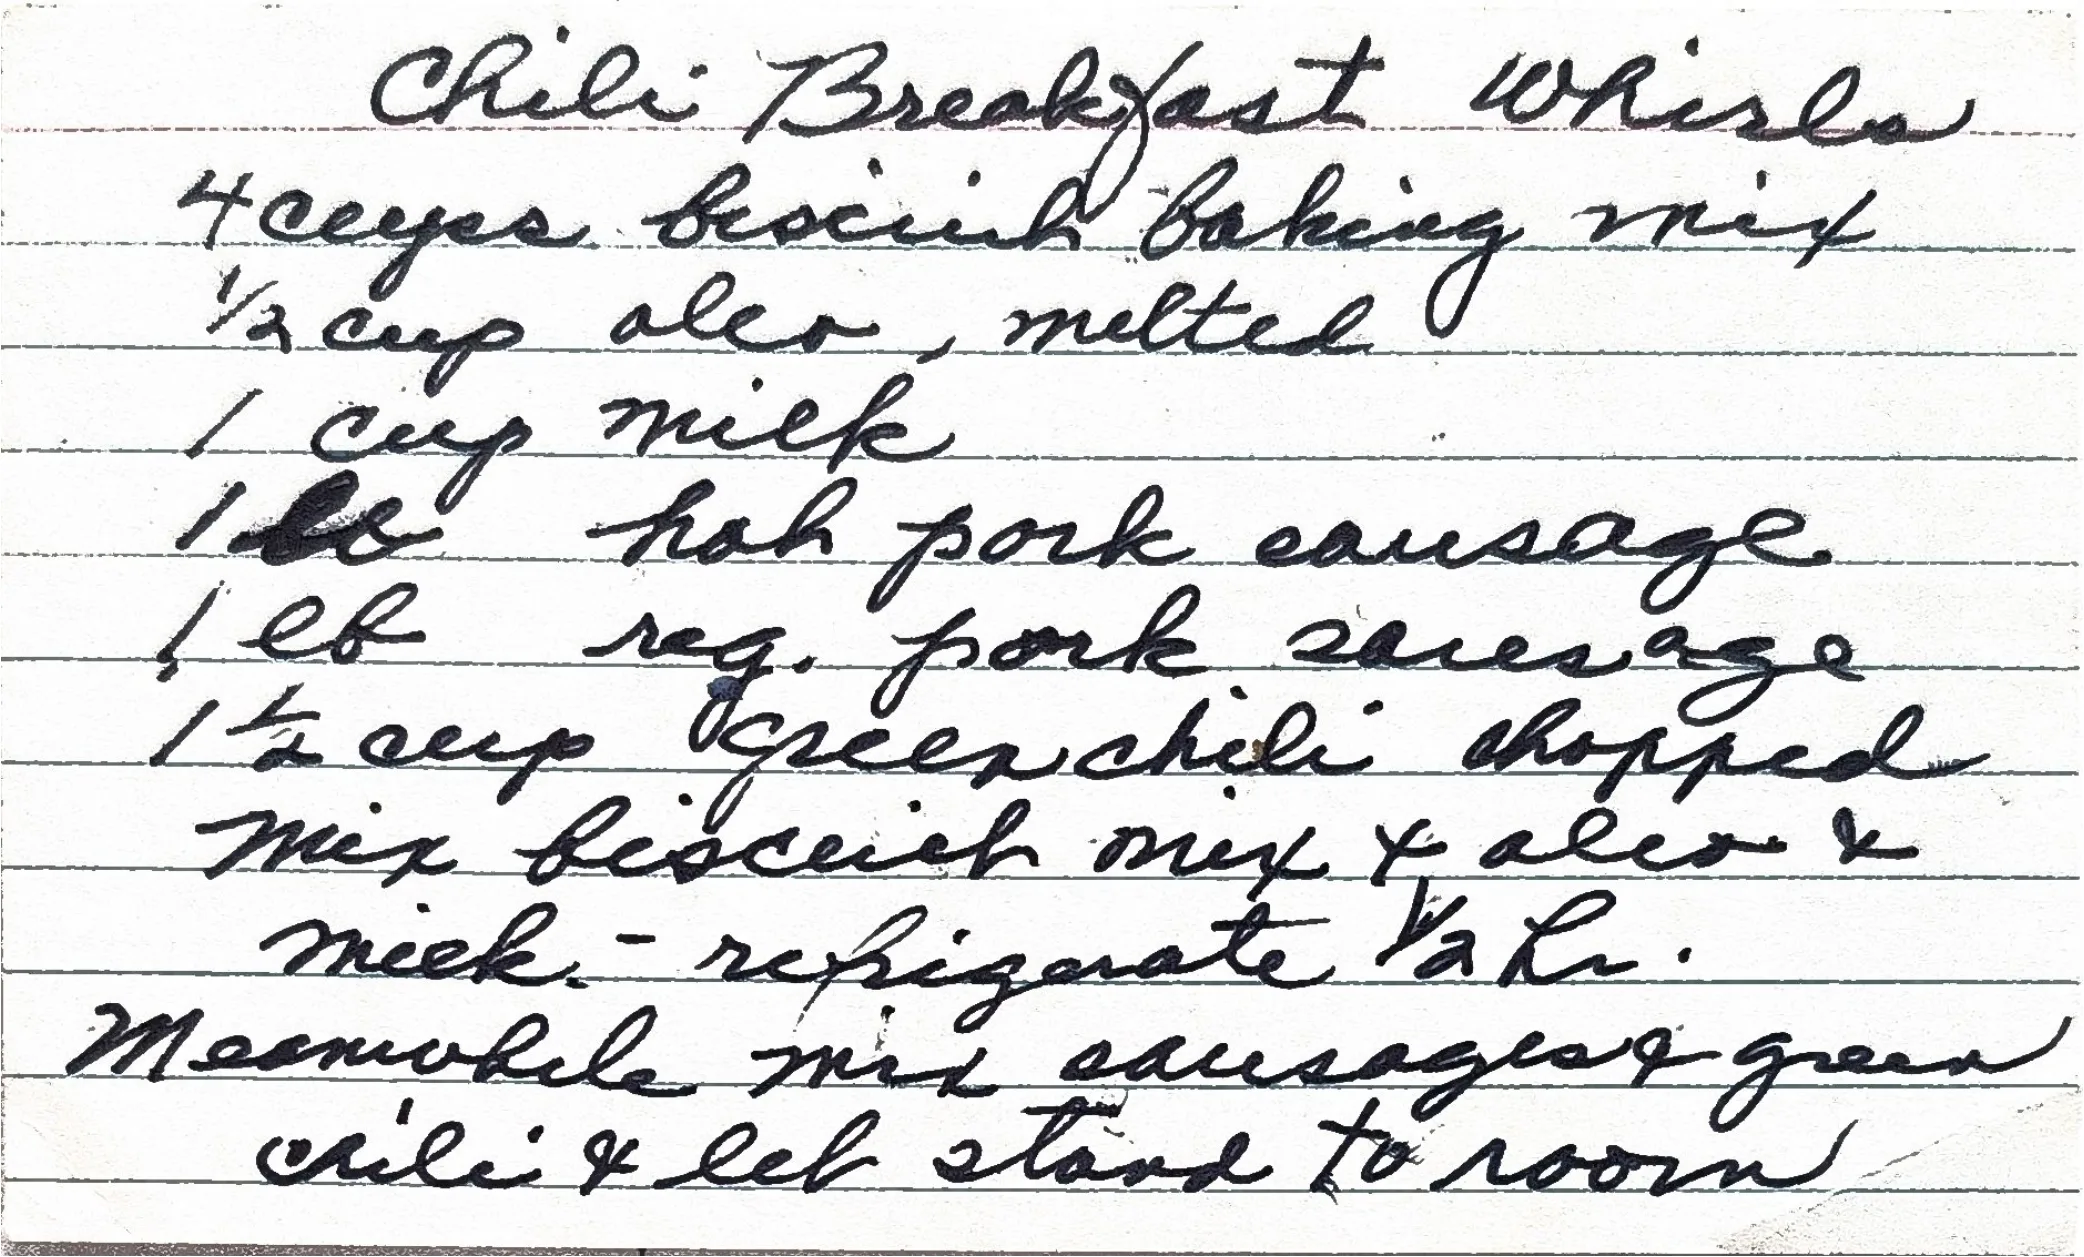 Chili Breakfast Whirls
4 cups biscuit baking mix
1/2 cup oleo, melted
1 cup milk
1 lb hot pork sausage
1 lb reg. pork sausage
1 1/2 cup green chili chopped
Mix biscuit mix & oleo &
milk. - refrigerate 1/2 hr.
Meanwhile mix sausages & green
chili & let stand to room